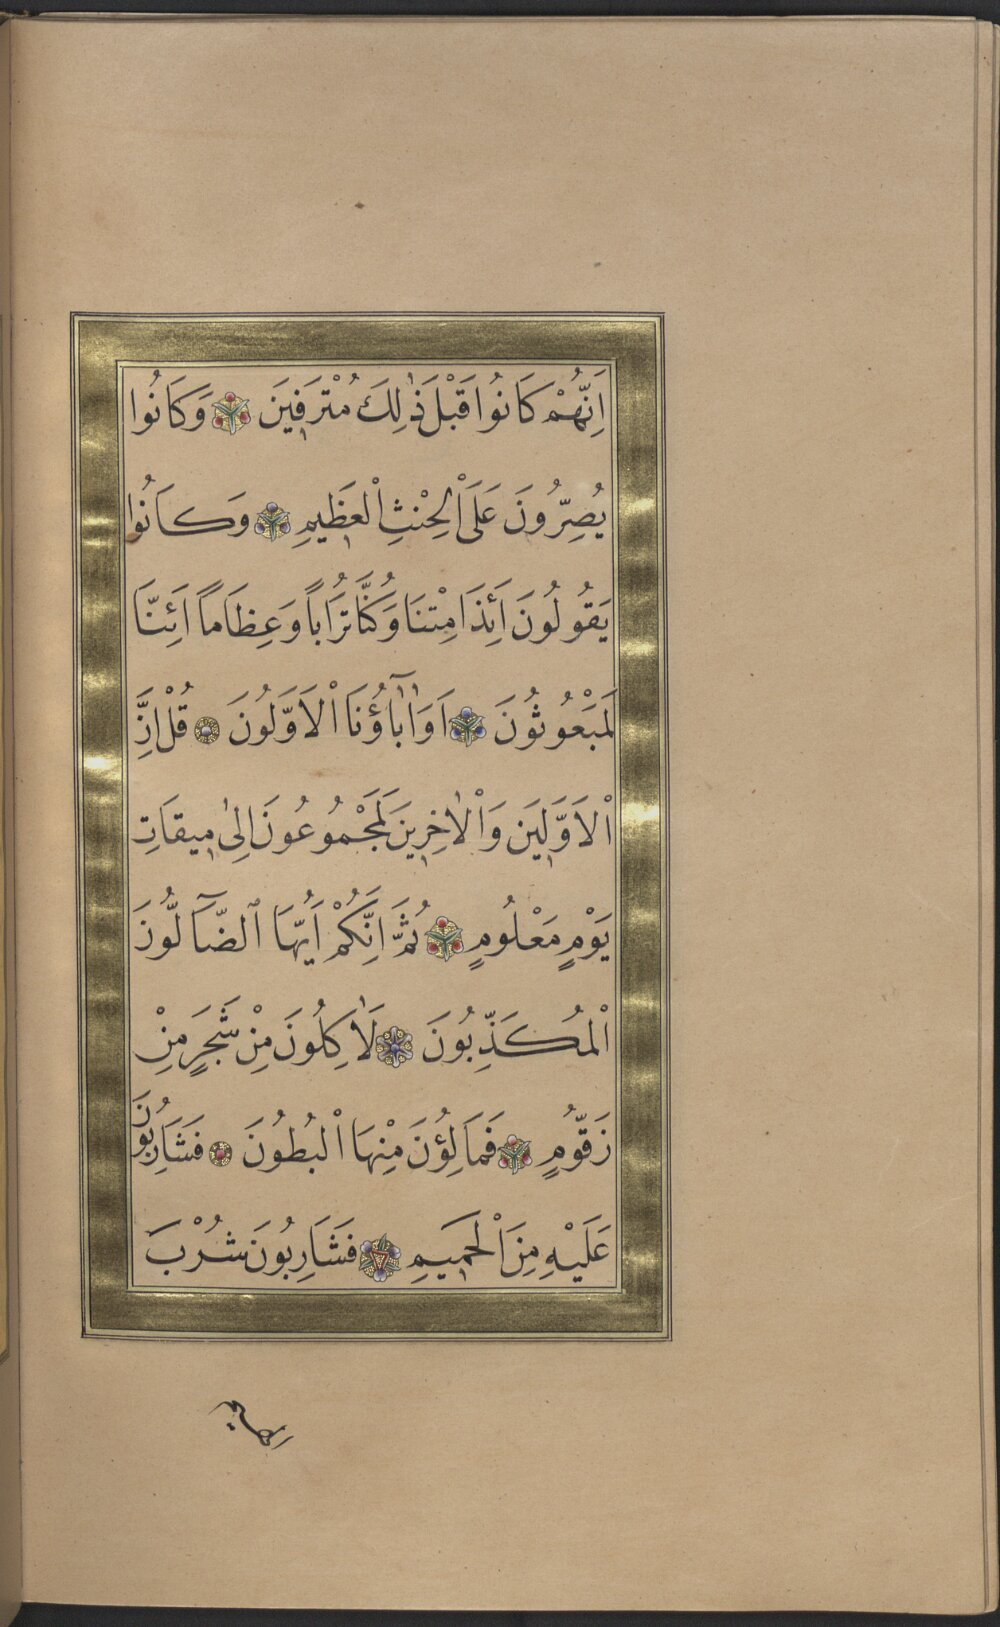 اِنَّهُمْ كَانُوا قَبْلَ ذٰلِكَ مُتْرَفِينَ وَكَانُوا
يُصِرُّونَ عَلَى اْلحِنْثِ اْلعَظِيمِ وَكَانُوا
يَقُولُونَ اَئِذَا مِتْنَا وَكُنَّا تُرَاباً وَعِظَاماً اَئِنَّا
لَمَبْعُوثُونَ اَوَاٰبَٓاؤُنَا اْلاَوَّلُونَ قُلْ اِنَّ
اْلاَوَّلِينَ وَاْلاٰخِرِينَ لَمَجْمُوعُونَ اِلىٰ مِيقَاتِ
يَوْمٍ مَعْلُومٍ ثُمَّ اِنَّكُمْ اَيُّهَا الضَّٓالُّونَ
اْلمُكَذِّبُونَ لَاٰكِلُونَ مِنْ شَجَرٍ مِنْ
زَقُّومٍ فَمَالِؤُنَ مِنْهَا اْلبُطُونَ فَشَارِبُونَ
عَلَيْهِ مِنَ اْلحَمِيمِ فَشَارِبُونَ شُرْبَ